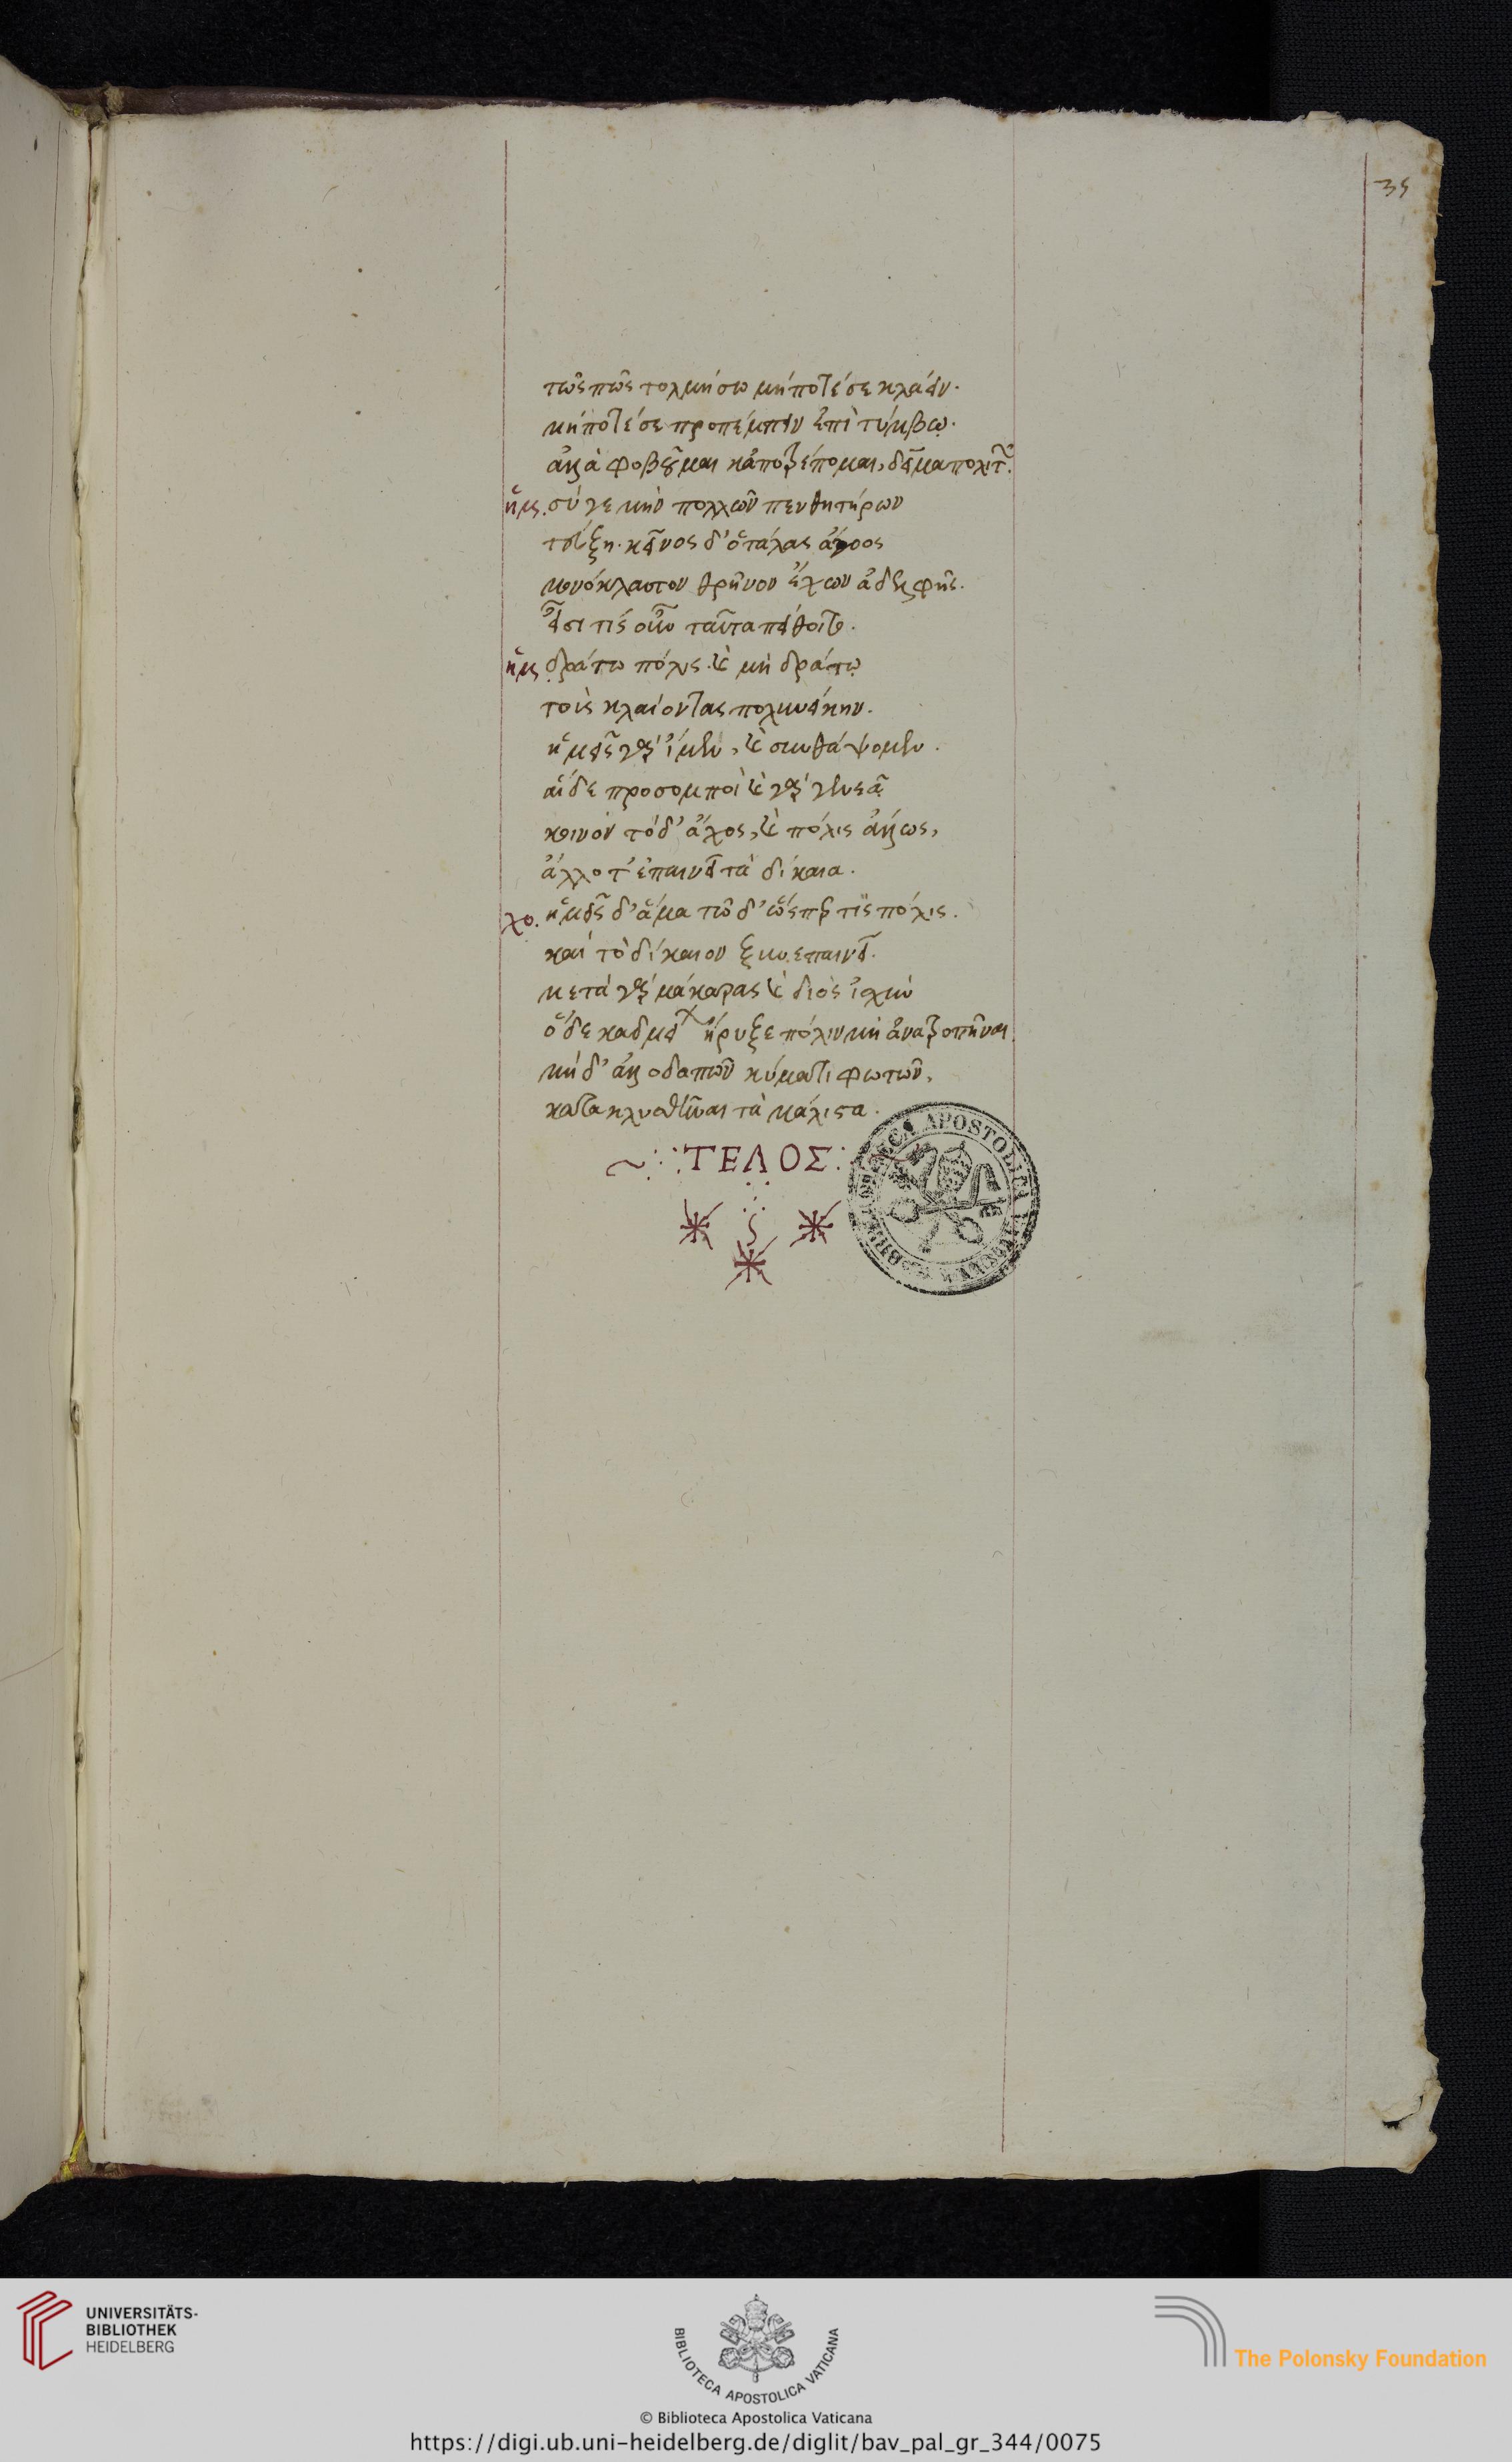 35
τῶς πῶς τολμήσω μήποτέ σε κλάειν.
μήποτέ σε προπέμπειν ἐπὶ τύμβῳ.
ἀλλὰ φοβοῦμαι κἀποτρέπομαι, δεῖμα πολιτῶν.
ἡμ. σύ γε μὴν πολλῶν πενθητήρων
τεύξη. κεῖνος δ' ὁ τάλας ἄγοος
μονόκλαυτον θρῆνον ἔχων ἀδελφῆς.
εἶσι τίς οὖν ταῦτα πείθοιτο.
ἡμ. δράτω πόλις καὶ μὴ δράτω
τοὺς κλαίοντας πολυνείκην.
ἡμεῖς γὰρ ἴμεν, καὶ συνθάψομεν.
αἵδε προσομποὶ καὶ γὰρ γενεᾷ
κοινὸν τόδ' ἄχος, καὶ πόλις ἄλλως,
ἄλλοτ' ἐπαινεῖ τὰ δίκαια.
χο. ἡμεῖς δ' ἅμα τῶδ' ὥσπερ τις πόλις.
καὶ τὸ δίκαιον ξυνεπαινεῖ.
μετὰ γὰρ μάκαρας καὶ διὸς ἰσχὺν
ὅδε καδμείων ἤρυξε πόλιν μὴ ἀνατραπῆναι
μήδ' ἀλλοδαπῶν κύματι φωτῶν,
κατακλυσθῆναι τὰ μάλιστα.
ΤΕΛΟΣ
UNIVERSITÄTS-
BIBLIOTHEK
HEIDELBERG
BIBLIOTECA APOSTOLICA VATICANA
The Polonsky Foundation
© Biblioteca Apostolica Vaticana
https://digi.ub.uni-heidelberg.de/diglit/bav_pal_gr_344/0075